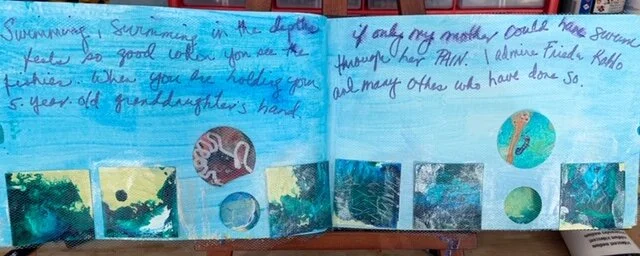 Swimming, Swimming in the depths
feels so good when you see the
fishies. When you are holding your
5-year-old granddaughter's hand.
if only my mother could have swum
through her PAIN. I admire Frieda Kahlo
and many others who have done so.